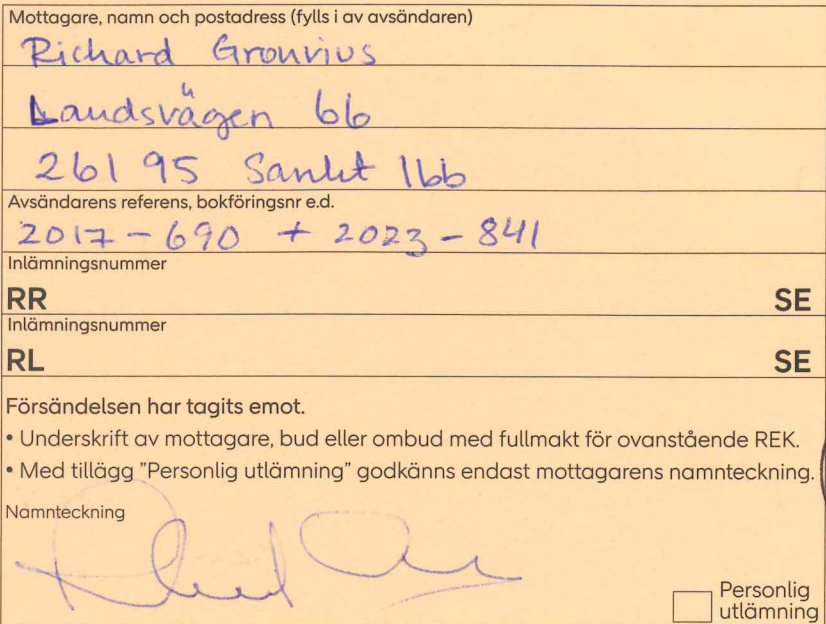 Mottagare, namn och postadress (fylls i av avsändaren)
Richard Gronvius
Landsvägen 66
261 95 Sankt Ibb
Avsändarens referens, bokföringsnr e.d.
2017-690 + 2023-841
Inlämningsnummer
RR SE
Inlämningsnummer
RL SE
Försändelsen har tagits emot.
• Underskrift av mottagare, bud eller ombud med fullmakt för ovanstående REK.
• Med tillägg "Personlig utlämning" godkänns endast mottagarens namnteckning.
Namnteckning
Personlig
utlämning